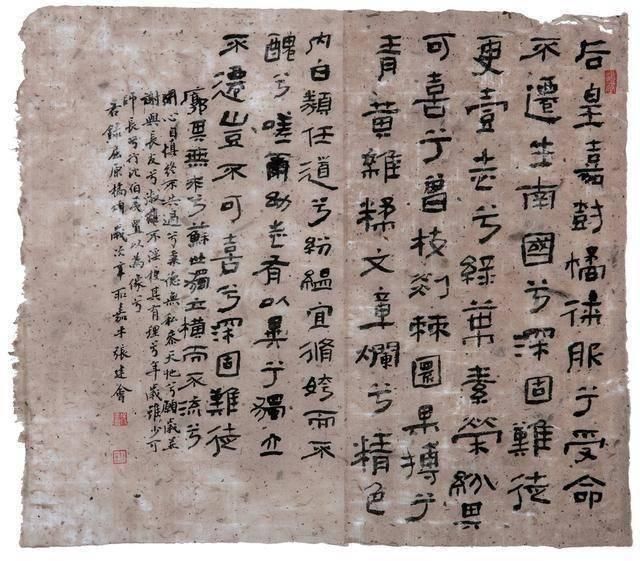 后皇嘉樹橘徠服兮受命
不遷生南國兮深固難徙
更壹志兮綠葉素榮紛其
可喜兮曾枝剡棘圓果摶兮
青黃雜糅文章爛兮精色
內白類任道兮紛縕宜脩姱而不
醜兮嗟爾幼志有以異兮獨立
不遷豈不可喜兮深固難徙
廓其無求兮蘇世獨立橫而不流兮
閉心自慎終不失過兮秉德無私參天地兮願歲並
謝與長友兮淑離不淫梗其有理兮年歲雖少可
師長兮行比伯夷置以為像兮
右錄屈原橘頌歲次辛卯嘉平張建會